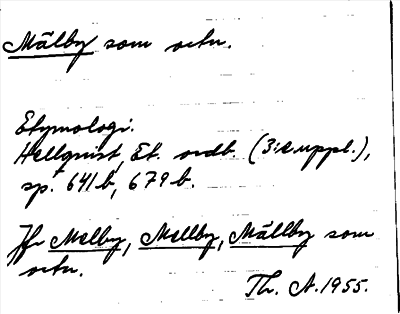 Mälby som ortn.
Etymologi.
Hellquist, Et. ordb. (3:e uppl.),
sp. 641 b, 679 b.
Jfr Melby, Mellby, Mällby som
ortn.
Th. A. 1955.